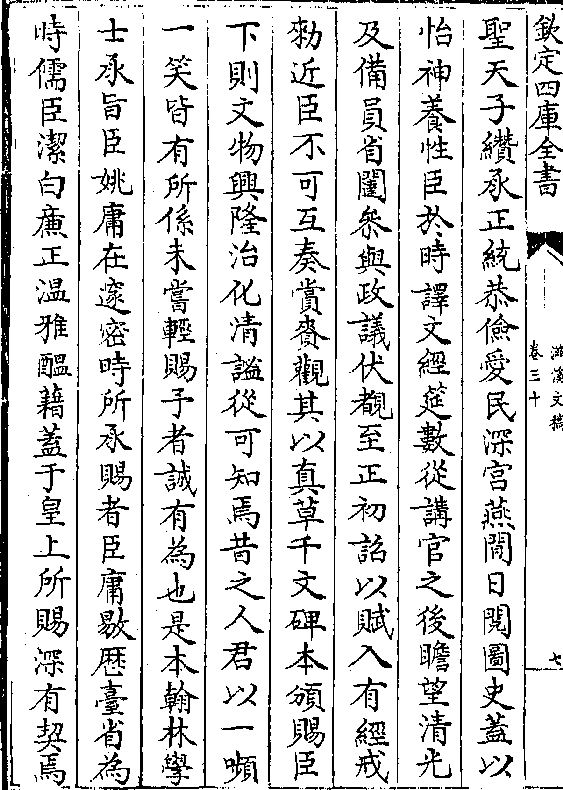 欽定四庫全書
滋溪文稿
卷三十
七
聖天子纉承正統恭儉愛民深宮燕閒日閱圖史蓋以
怡神養性臣於時譯文經筵數從講官之後瞻望清光
及備員省闥叅與政議伏覩至正初詔以賦入有經戒
勑近臣不可互奏賞賚觀其以真草千文碑本頒賜臣
下則文物興隆治化清謐從可知焉昔之人君以一嚬
一笑皆有所係未嘗輕賜予者誠有為也是本翰林學
士承旨臣姚庸在邃密時所承賜者臣庸敭歷臺省為
時儒臣潔白亷正溫雅醞藉蓋于皇上所賜深有契焉